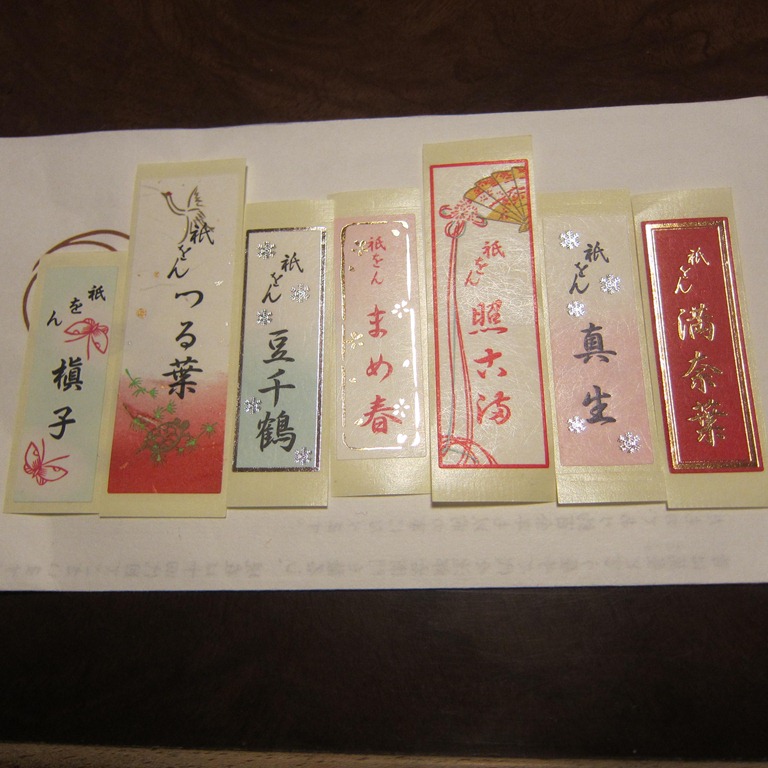 祇をん
槇子
祇をん
つる葉
祇をん
豆千鶴
祇をん
まめ春
祇をん
照古満
祇をん
真生
祇をん
満奈葉